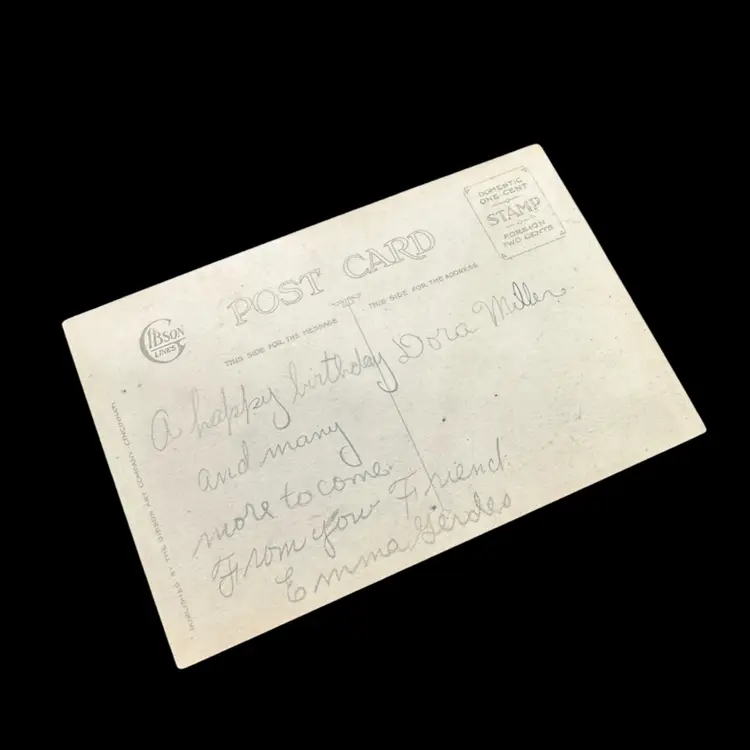 POST CARD
DOMESTIC
ONE CENT
STAMP
FOREIGN
TWO CENTS
GIBSON
LINES
THIS SIDE FOR THE MESSAGE
THIS SIDE FOR THE ADDRESS
A happy birthday
and many
more to come
From your Friend
Emma Gerdes
Dora Miller
PUBLISHED BY THE GIBSON ART COMPANY, CINCINNATI